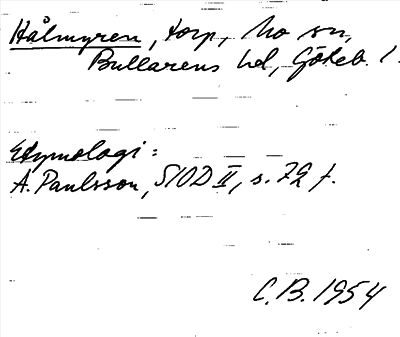 Hålmyren, torp, Mo sn,
Bullarens hd, Göteb. l.
Etymologi:
A. Paulsson, SIOD II, s. 72 f.
C.B. 1954